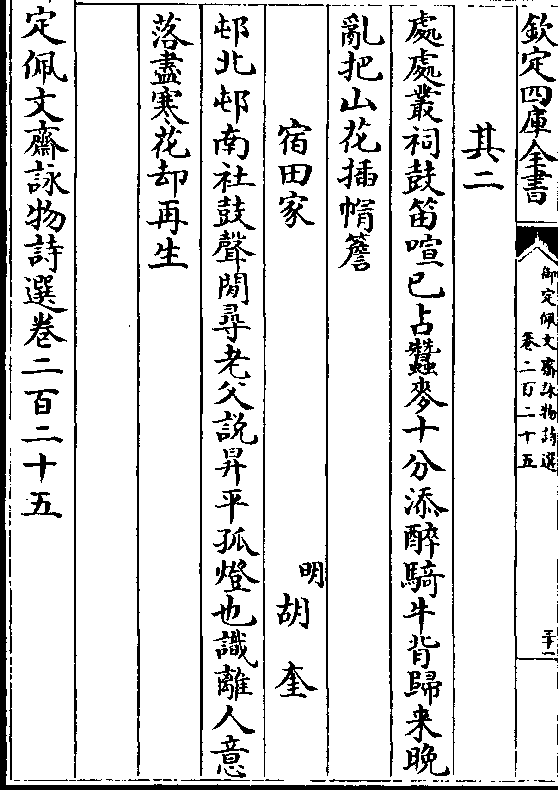 欽定四庫全書
御定佩文齋詠物詩選
卷二百二十五
其二
處處叢祠鼓笛喧已占蠶麥十分添醉騎牛背歸来晚
亂把山花插帽簷
宿田家
明胡奎
邨北邨南社鼓聲閒尋老父説昇平孤燈也識離人意
落盡寒花却再生
定佩文齋詠物詩選卷二百二十五